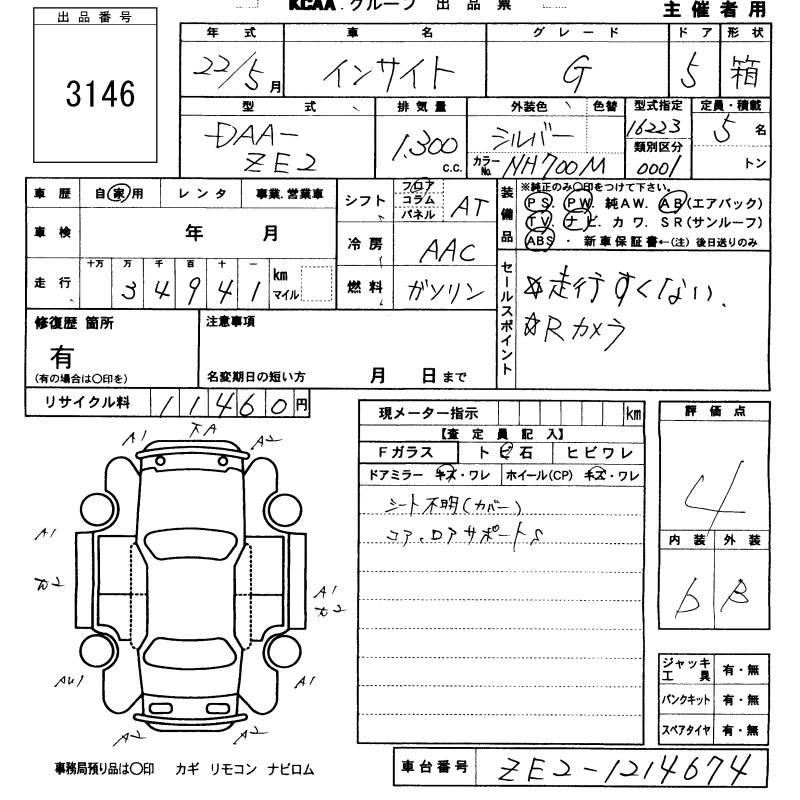 KCAA グループ 出品票
主催者用
出品番号
3146
年式 車名 グレード ドア 形状
22/5月 インサイト G 5 箱
型式 排気量 外装色 色替 型式指定 定員・積載
DAA-ZE2 1,300 c.c. シルバー カラーNo. NH700M 16223 5 名
類別区分 0001 トン
車歴 自家用 レンタ 事業.営業車
シフト フロア コラム パネル AT
装備品 ※純正のみ〇印をつけて下さい。
PS. PW. 純AW. AB(エアバック)
TV. ナビ. カワ. SR(サンルーフ)
ABS ・ 新車保証書←(注) 後日送りのみ
車検 年 月
冷房 AAC
走行 十万 万 千 百 十 一 km マイル
3 4 9 4 1
燃料 ガソリン
セールスポイント
☆走行すくない.
☆Rカメラ
修復歴 箇所
有
(有の場合は〇印を)
注意事項
名変期日の短い方 月 日まで
リサイクル料 11460円
現メーター指示 km
【査定員記入】
Fガラス トビ石 ヒビワレ
ドアミラー キズ・ワレ ホイール(CP) キズ・ワレ
シート不明(カバー)
コア、ロアサポートS
評価点
4
内装 外装
b B
ジャッキ工具 有・無
パンクキット 有・無
スペアタイヤ 有・無
A1 A2
A1
A1
A1
A2 A2
事務局預り品は〇印 カギ リモコン ナビロム
車台番号 ZE2-1214674